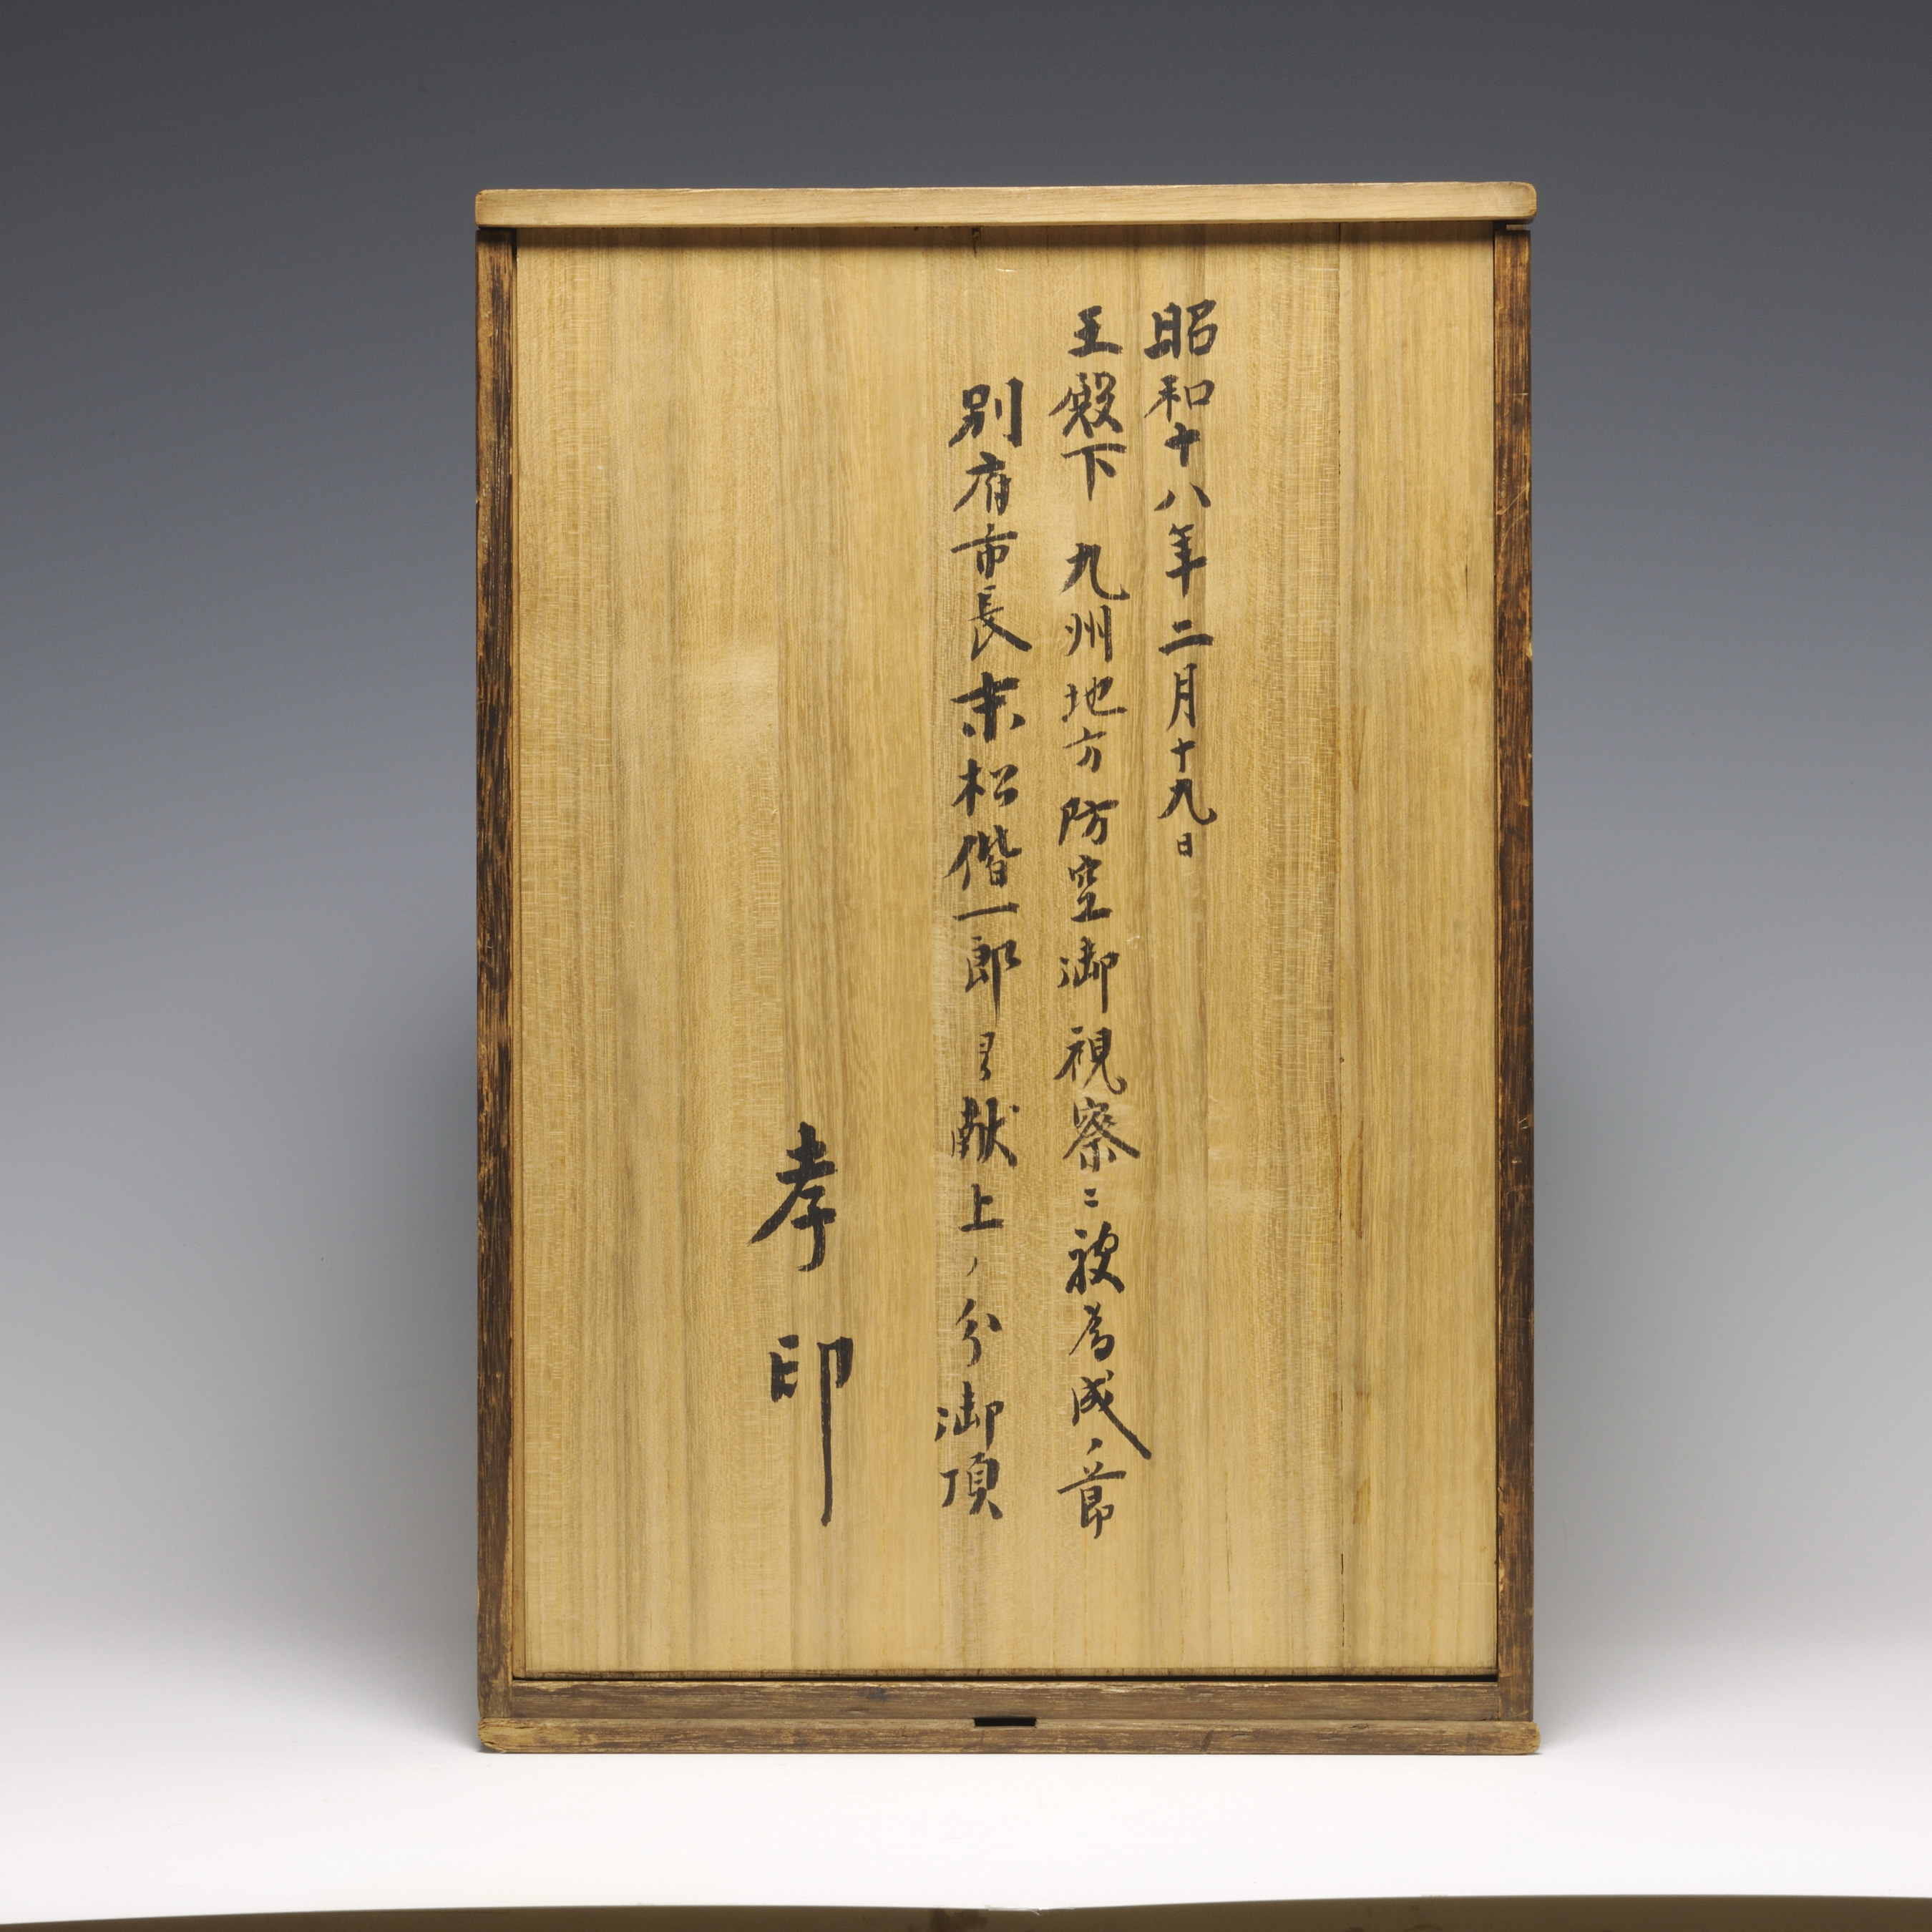 昭和十八年二月十九日
王殿下 九州地方防空御視察ニ被為成ノ節
別府市長末松偕一郎ヨリ献上ノ分御頂
孝印